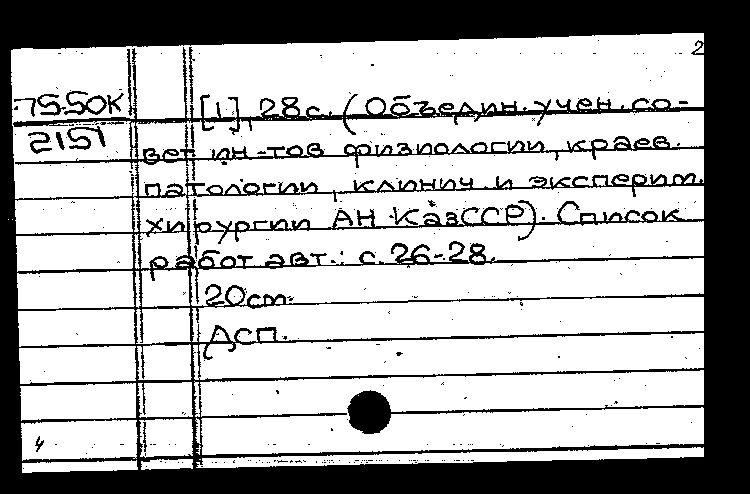 2
75-50К
2151
[1], 28 с. (Объедин. учен. со-
вет ин-тов физиологии, краев.
патологии, клинич. и эксперим.
хирургии АН КазССР). Список
работ авт.: с. 26-28.
20 см.
ДСП.
4